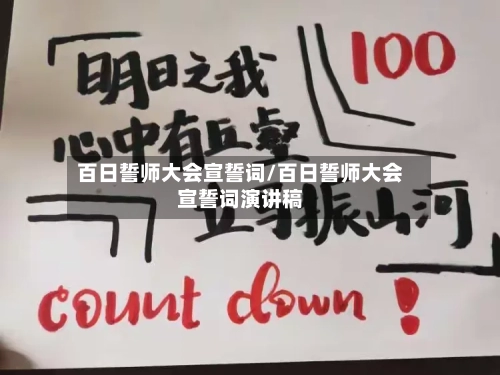 明日之我
100
心中有丘壑
百日誓师大会宣誓词/百日誓师大会
宣誓词演讲稿
立马振山河
count down!